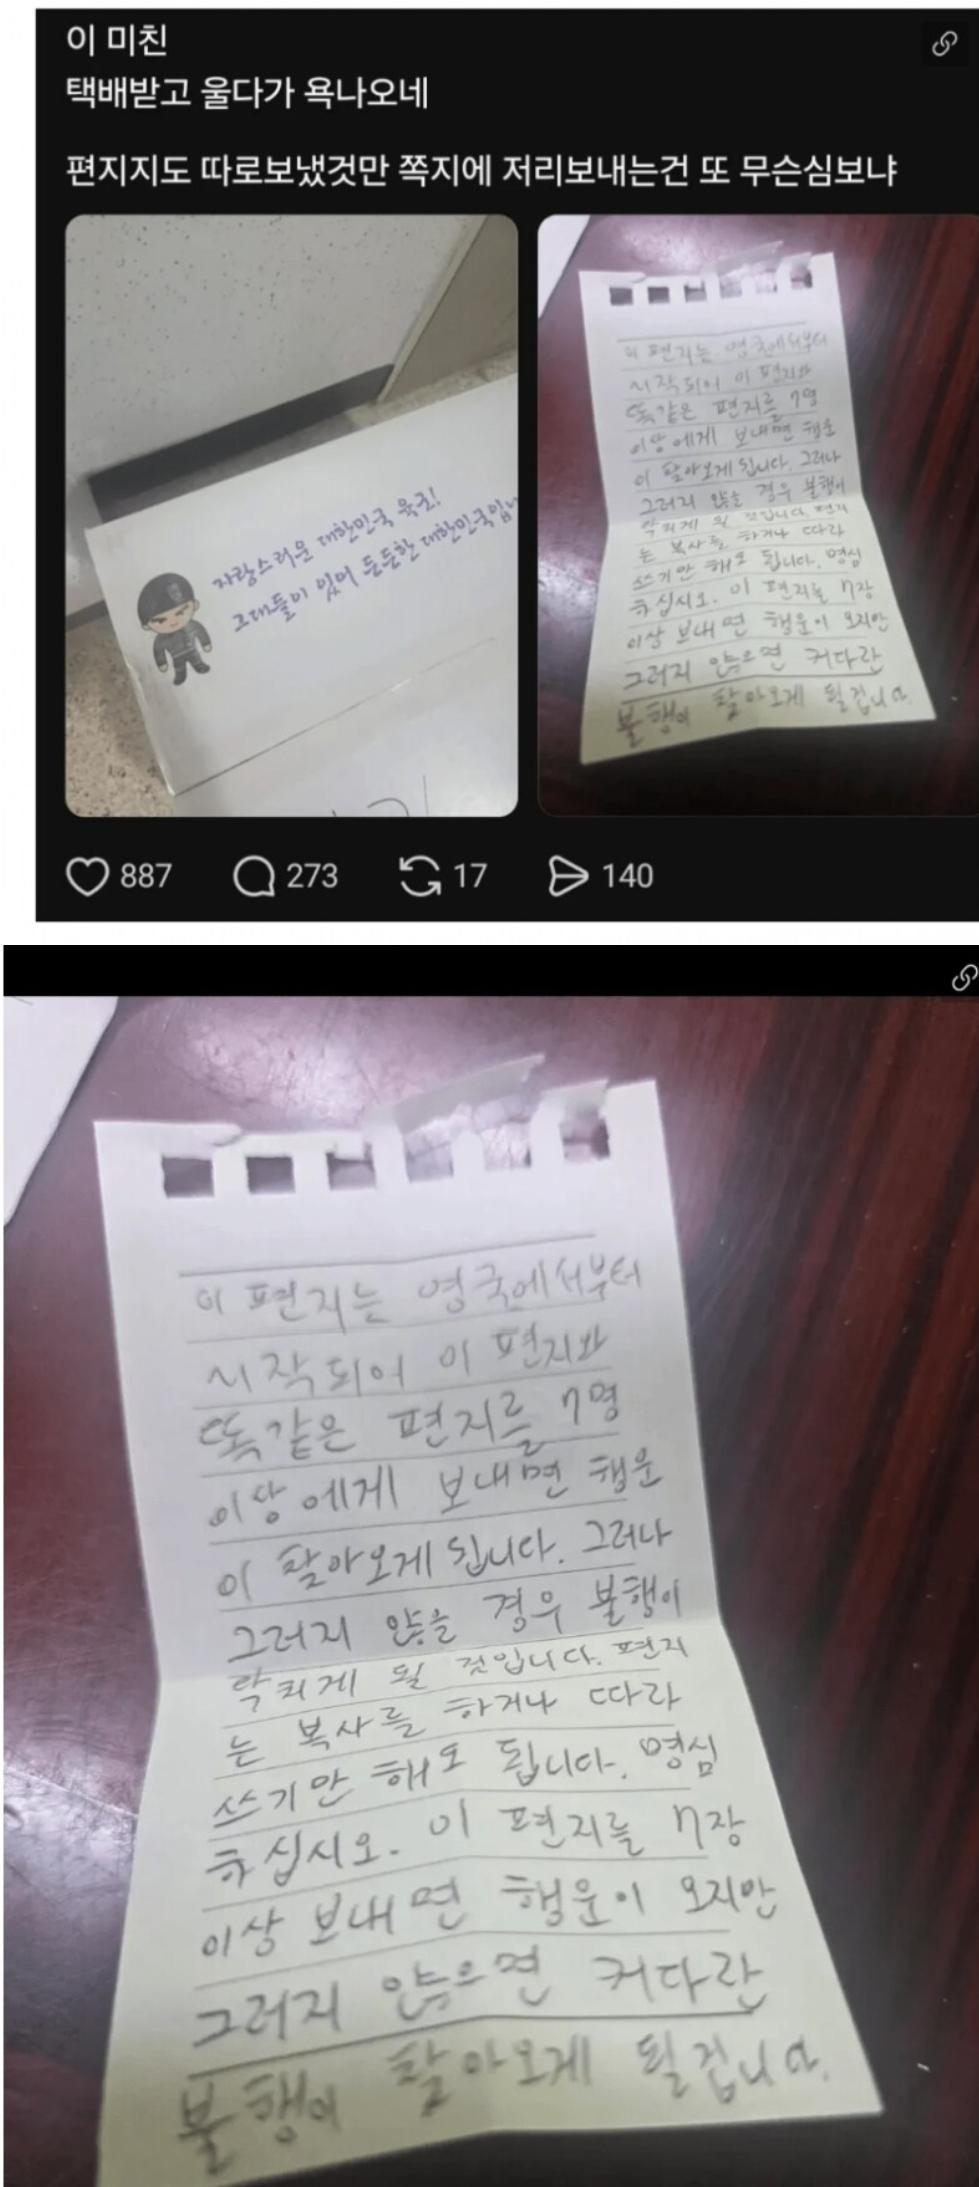 이 미친
택배받고 울다가 욕나오네
편지지도 따로보냈것만 쪽지에 저리보내는건 또 무슨심보냐
자랑스러운 대한민국 육군!
그대들이 있어 든든한 대한민국입니
이 편지는 영국에서부터
시작되어 이 편지와
똑같은 편지를 7명
이상에게 보내면 행운
이 찾아오게 됩니다. 그러나
그러지 않을 경우 불행이
닥치게 될 것입니다. 편지
는 복사를 하거나 따라
쓰기만 해도 됩니다. 명심
하십시오. 이 편지를 7장
이상 보내면 행운이 오지만
그러지 않으면 커다란
불행이 찾아오게 될겁니다.
887 273 17 140
이 편지는 영국에서부터
시작되어 이 편지와
똑같은 편지를 7명
이상에게 보내면 행운
이 찾아오게 됩니다. 그러나
그러지 않을 경우 불행이
닥치게 될 것입니다. 편지
는 복사를 하거나 따라
쓰기만 해도 됩니다. 명심
하십시오. 이 편지를 7장
이상 보내면 행운이 오지만
그러지 않으면 커다란
불행이 찾아오게 될겁니다.